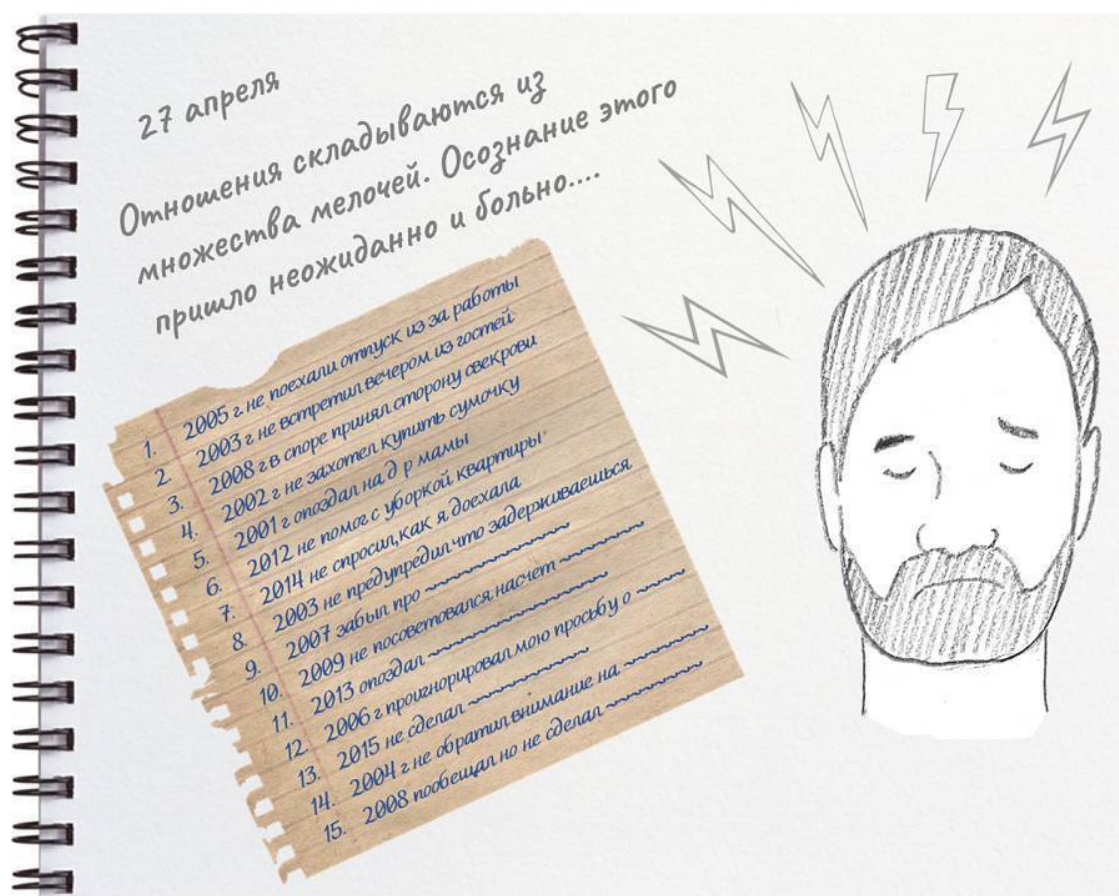 27 апреля
Отношения складываются из
множества мелочей. Осознание этого
пришло неожиданно и больно....
1. 2005 г не поехали отпуск из за работы
2. 2003 г не встретил вечером из гостей
3. 2008 г в споре принял сторону свекрови
4. 2002 г не захотел купить сумочку
5. 2001 г опоздал на д р мамы
6. 2012 не помог с уборкой квартиры
7. 2014 не спросил, как я доехала
8. 2003 не предупредил что задерживаешься
9. 2007 забыл про
10. 2009 не посоветовался насчет
11. 2013 опоздал
12. 2006 г проигнорировал мою просьбу о
13. 2015 не сделал
14. 2004 г не обратил внимание на
15. 2008 пообещал но не сделал